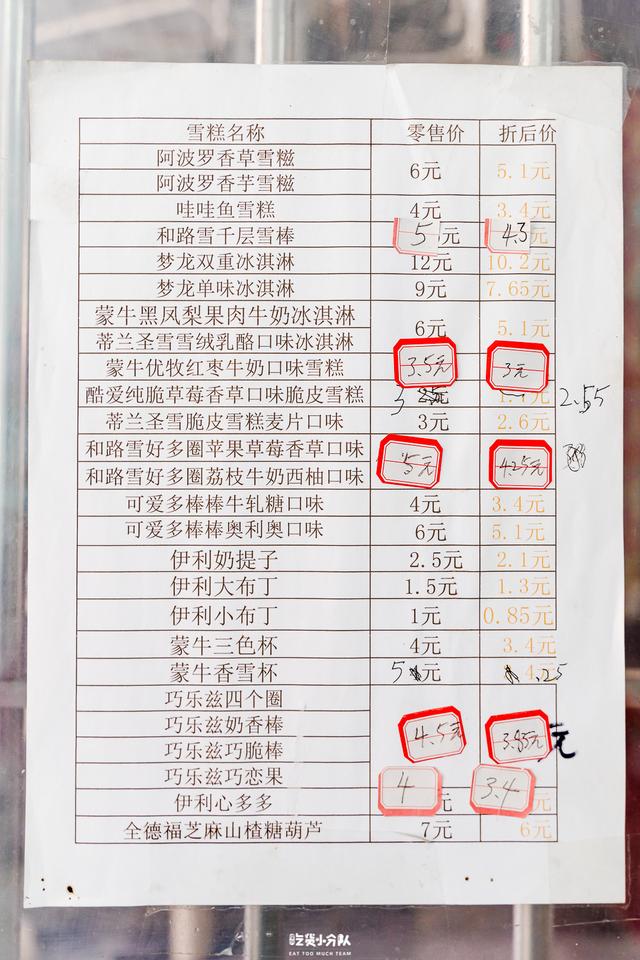 雪糕名称 零售价 折后价
阿波罗香草雪糍 6元 5.1元
阿波罗香芋雪糍
哇哇鱼雪糕 4元 3.4元
和路雪千层雪棒 5元 4.3元
梦龙双重冰淇淋 12元 10.2元
梦龙单味冰淇淋 9元 7.65元
蒙牛黑凤梨果肉牛奶冰淇淋 6元 5.1元
蒂兰圣雪雪绒乳酪口味冰淇淋
蒙牛优牧红枣牛奶口味雪糕 3.5元 3元
酷爱纯脆草莓香草口味脆皮雪糕 3 元 2.55
蒂兰圣雪脆皮雪糕麦片口味 3元 2.6元
和路雪好多圈苹果草莓香草口味 5元 4.25元
和路雪好多圈荔枝牛奶西柚口味
可爱多棒棒牛轧糖口味 4元 3.4元
可爱多棒棒奥利奥口味 6元 5.1元
伊利奶提子 2.5元 2.1元
伊利大布丁 1.5元 1.3元
伊利小布丁 1元 0.85元
蒙牛三色杯 4元 3.4元
蒙牛香雪杯 5元 4.25
巧乐兹四个圈
巧乐兹奶香棒 4.5元 3.85元 元
巧乐兹巧脆棒
巧乐兹巧恋果
伊利心多多 4元 3.4元
全德福芝麻山楂糖葫芦 7元 6元
吃货小分队
EAT TOO MUCH TEAM